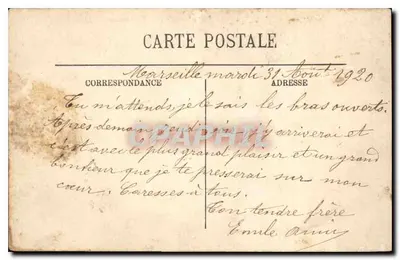 CARTE POSTALE
Marseille mardi 31 Août 1920
CORRESPONDANCE
ADRESSE
Tu m'attends, je le sais les bras ouverts.
Après demain jeudi j'y arriverai et
c'est avec le plus grand plaisir et un grand
bonheur que je te presserai sur mon
cœur. Caresses à tous.
Ton tendre frère
Emile